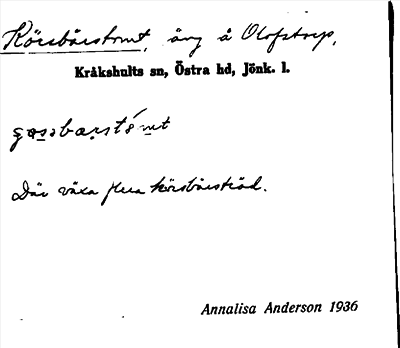 Körsbärstomt, äng å Olofstorp,
Kråkshults sn, Östra hd, Jönk. l.
Där växa flera körsbärsträd.
Annalisa Anderson 1936